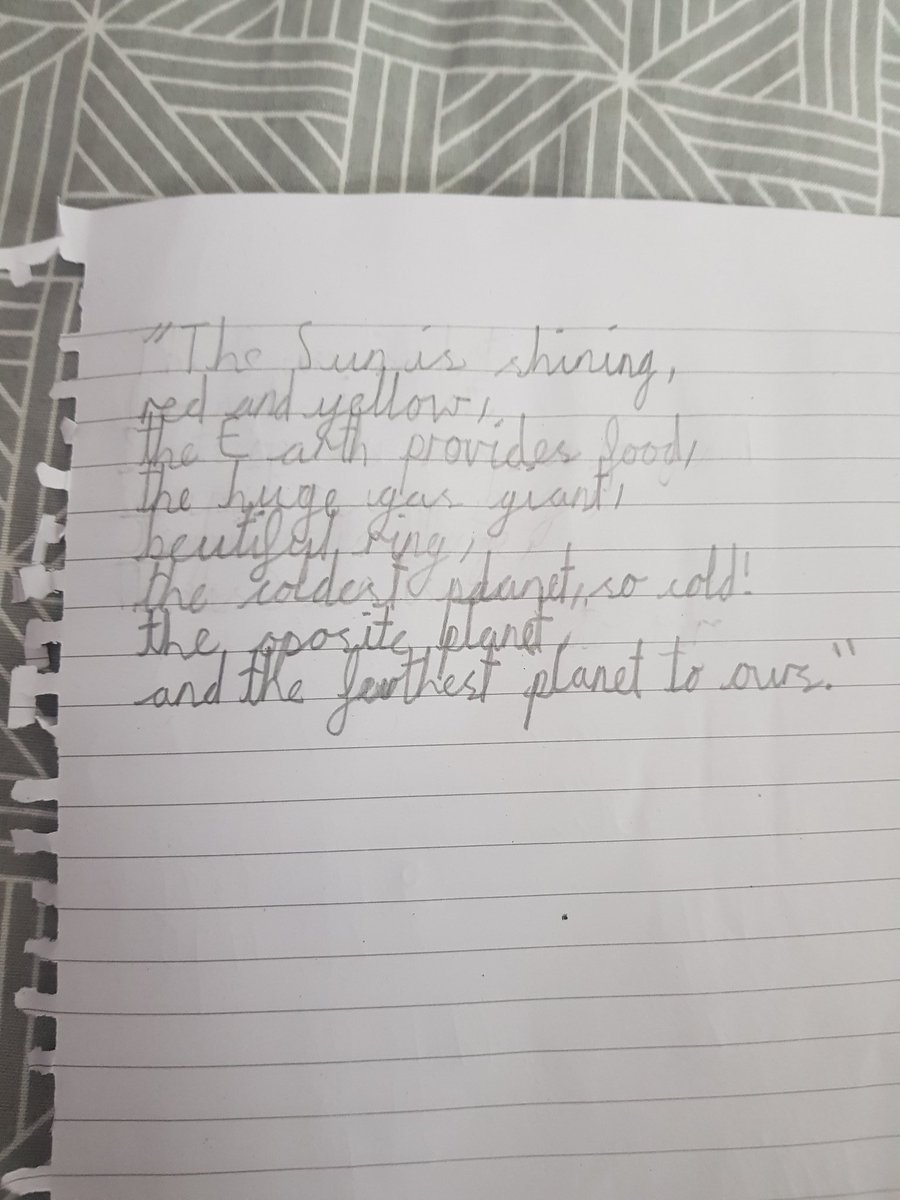 "The Sun is shining,
red and yellow,
the Earth provides food,
the huge gas giant,
beutiful ring,
the coldest planet, so cold!
the oposite planet,
and the farthest planet to ours."